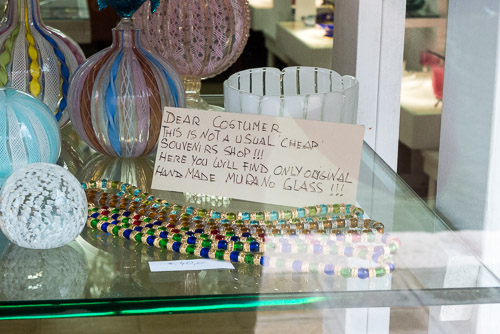 DEAR COSTUMER
THIS IS NOT A USUAL CHEAP
SOUVENIRS SHOP !!!
HERE YOU WILL FIND ONLY ORIGINAL
HAND MADE MURANO GLASS !!!